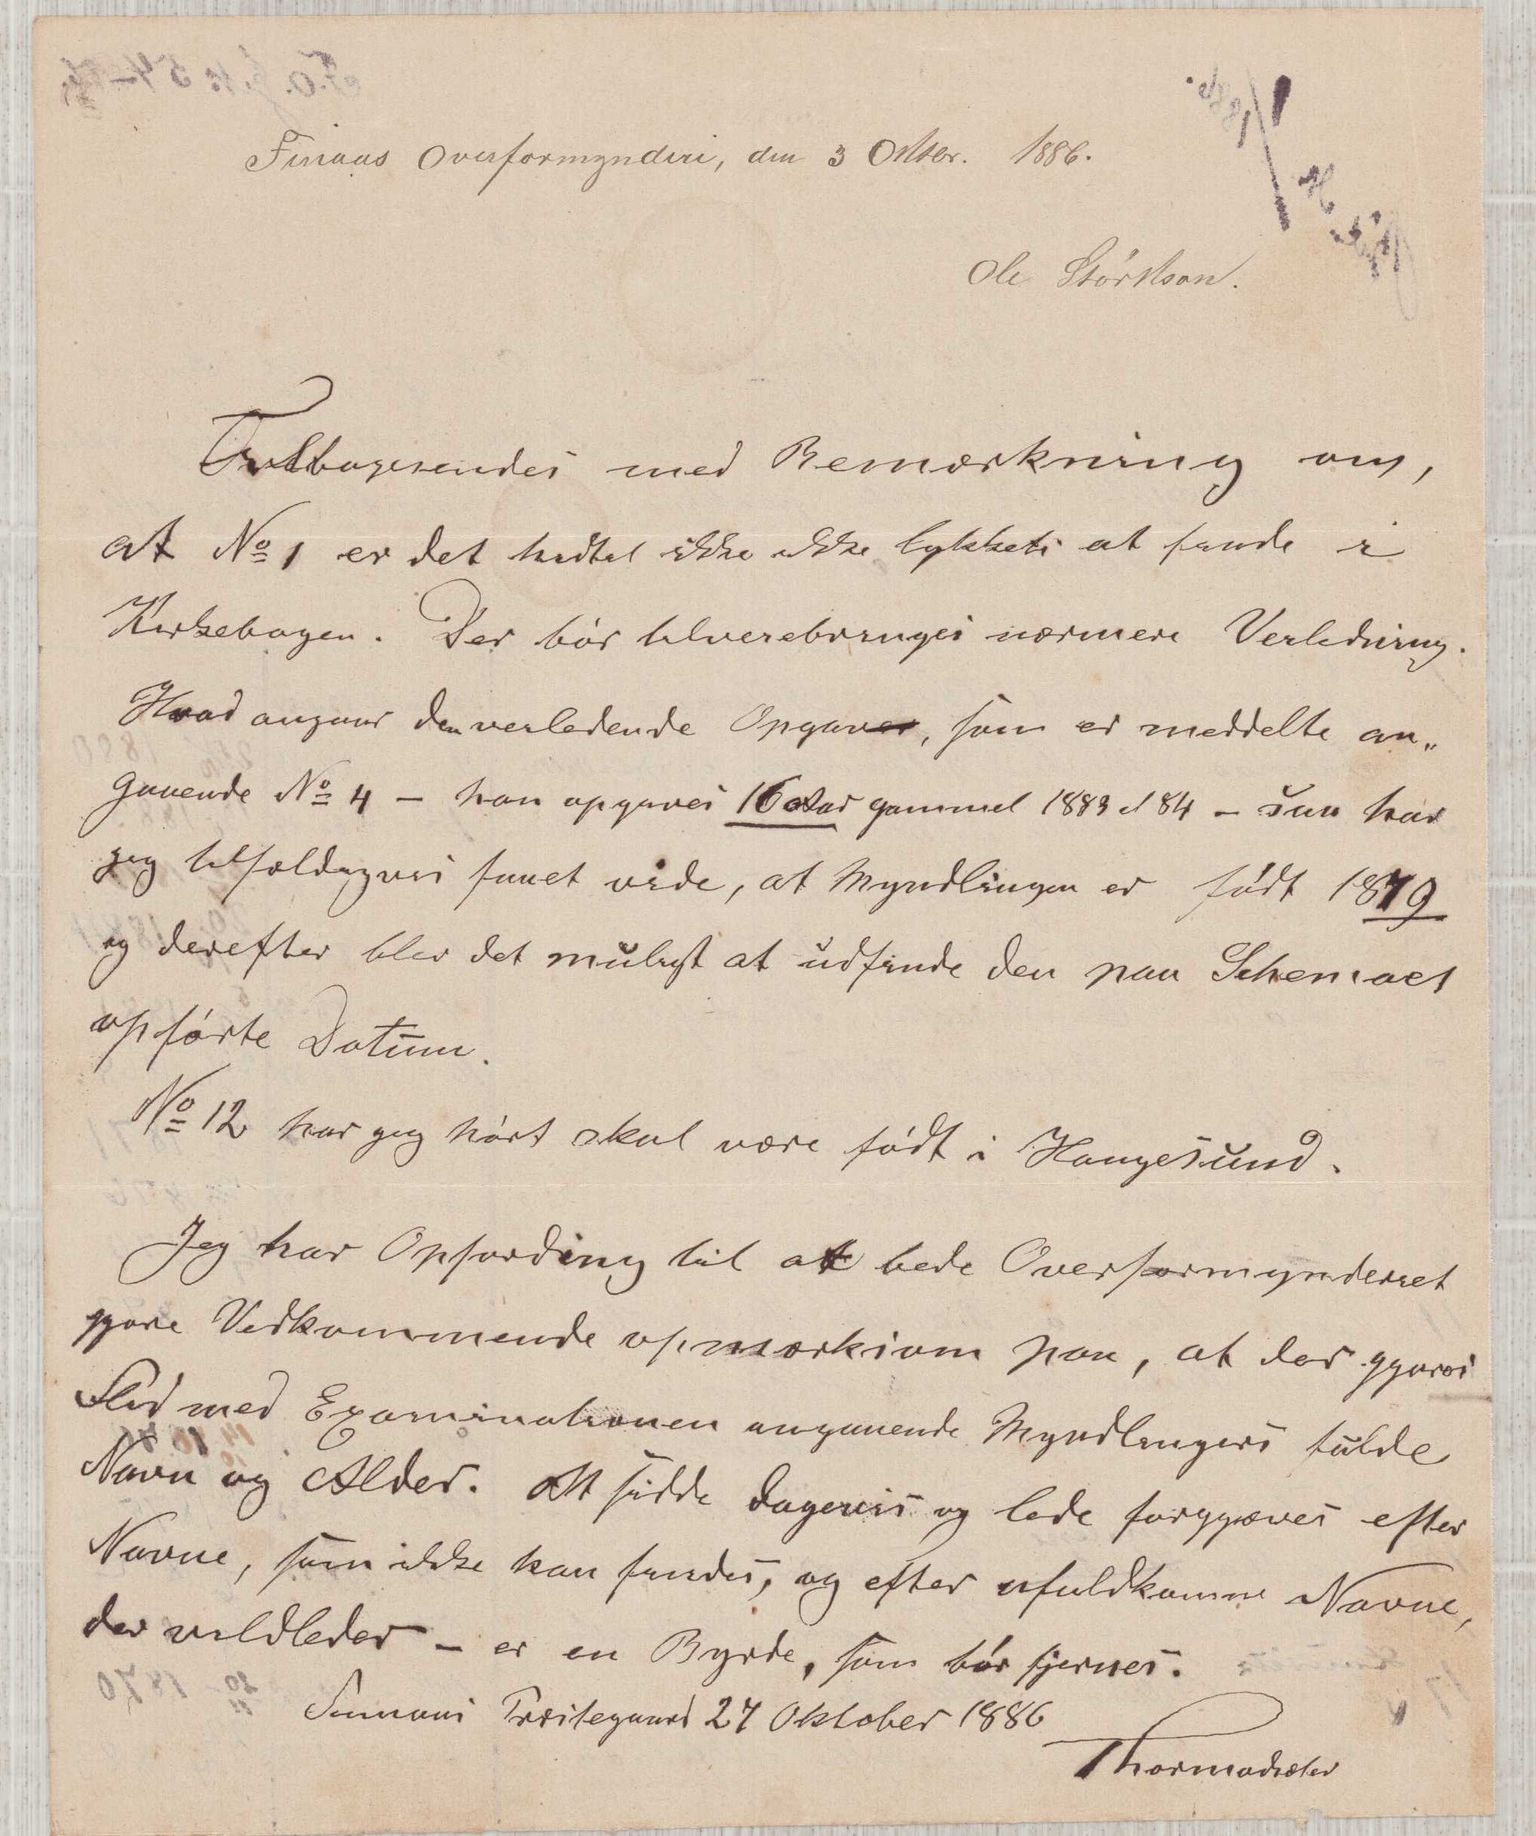 Finaas Overformynderi, den 3 Oktbr. 1886.
Ole Størkson.
Tilbagesendes med Bemærkning om,
at No 1 er det hidtil ikke ikke lykkets at finde i
Kirkebogen. Der bør tilveiebringes nærmere Veiledning.
Hvad angaar den veiledende Opgave, som er meddelte an„
gaaende No 4 – han opgaves 16 Aar gammel 1883 à 84 – saa har
jeg tilfældigvis faaet vide, at Myndlingen er født 1879
og derefter blev det muligt at udfinde den paa Schemaet
opførte Datum.
No 12 har jeg hørt skal være født i Haugesund.
Jeg har Opfording til at bede Overformynderiet
gjøre Vedkommende opmærksom paa, at der gjøres
Flid med Examinationen angaaende Myndlingers fulde
Navn og Alder. At sidde dagevis og lede forgjæves efter
Navne, som ikke kan findes, og efter ufuldkomne Navne,
der vildleder – er en Byrde, som bør fjernes.
Finnaas Præstegaard 27 Oktober 1886
Thormodsæter